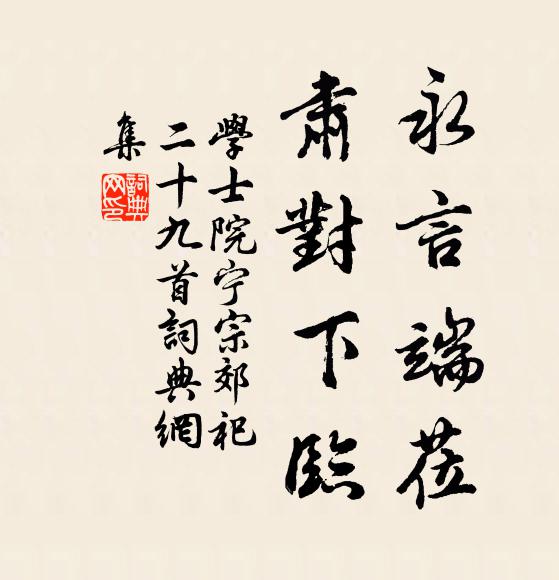 永言端莅
肅對下臨
學士院宁宗郊祀
二十九首詞典網
集
詞典网印